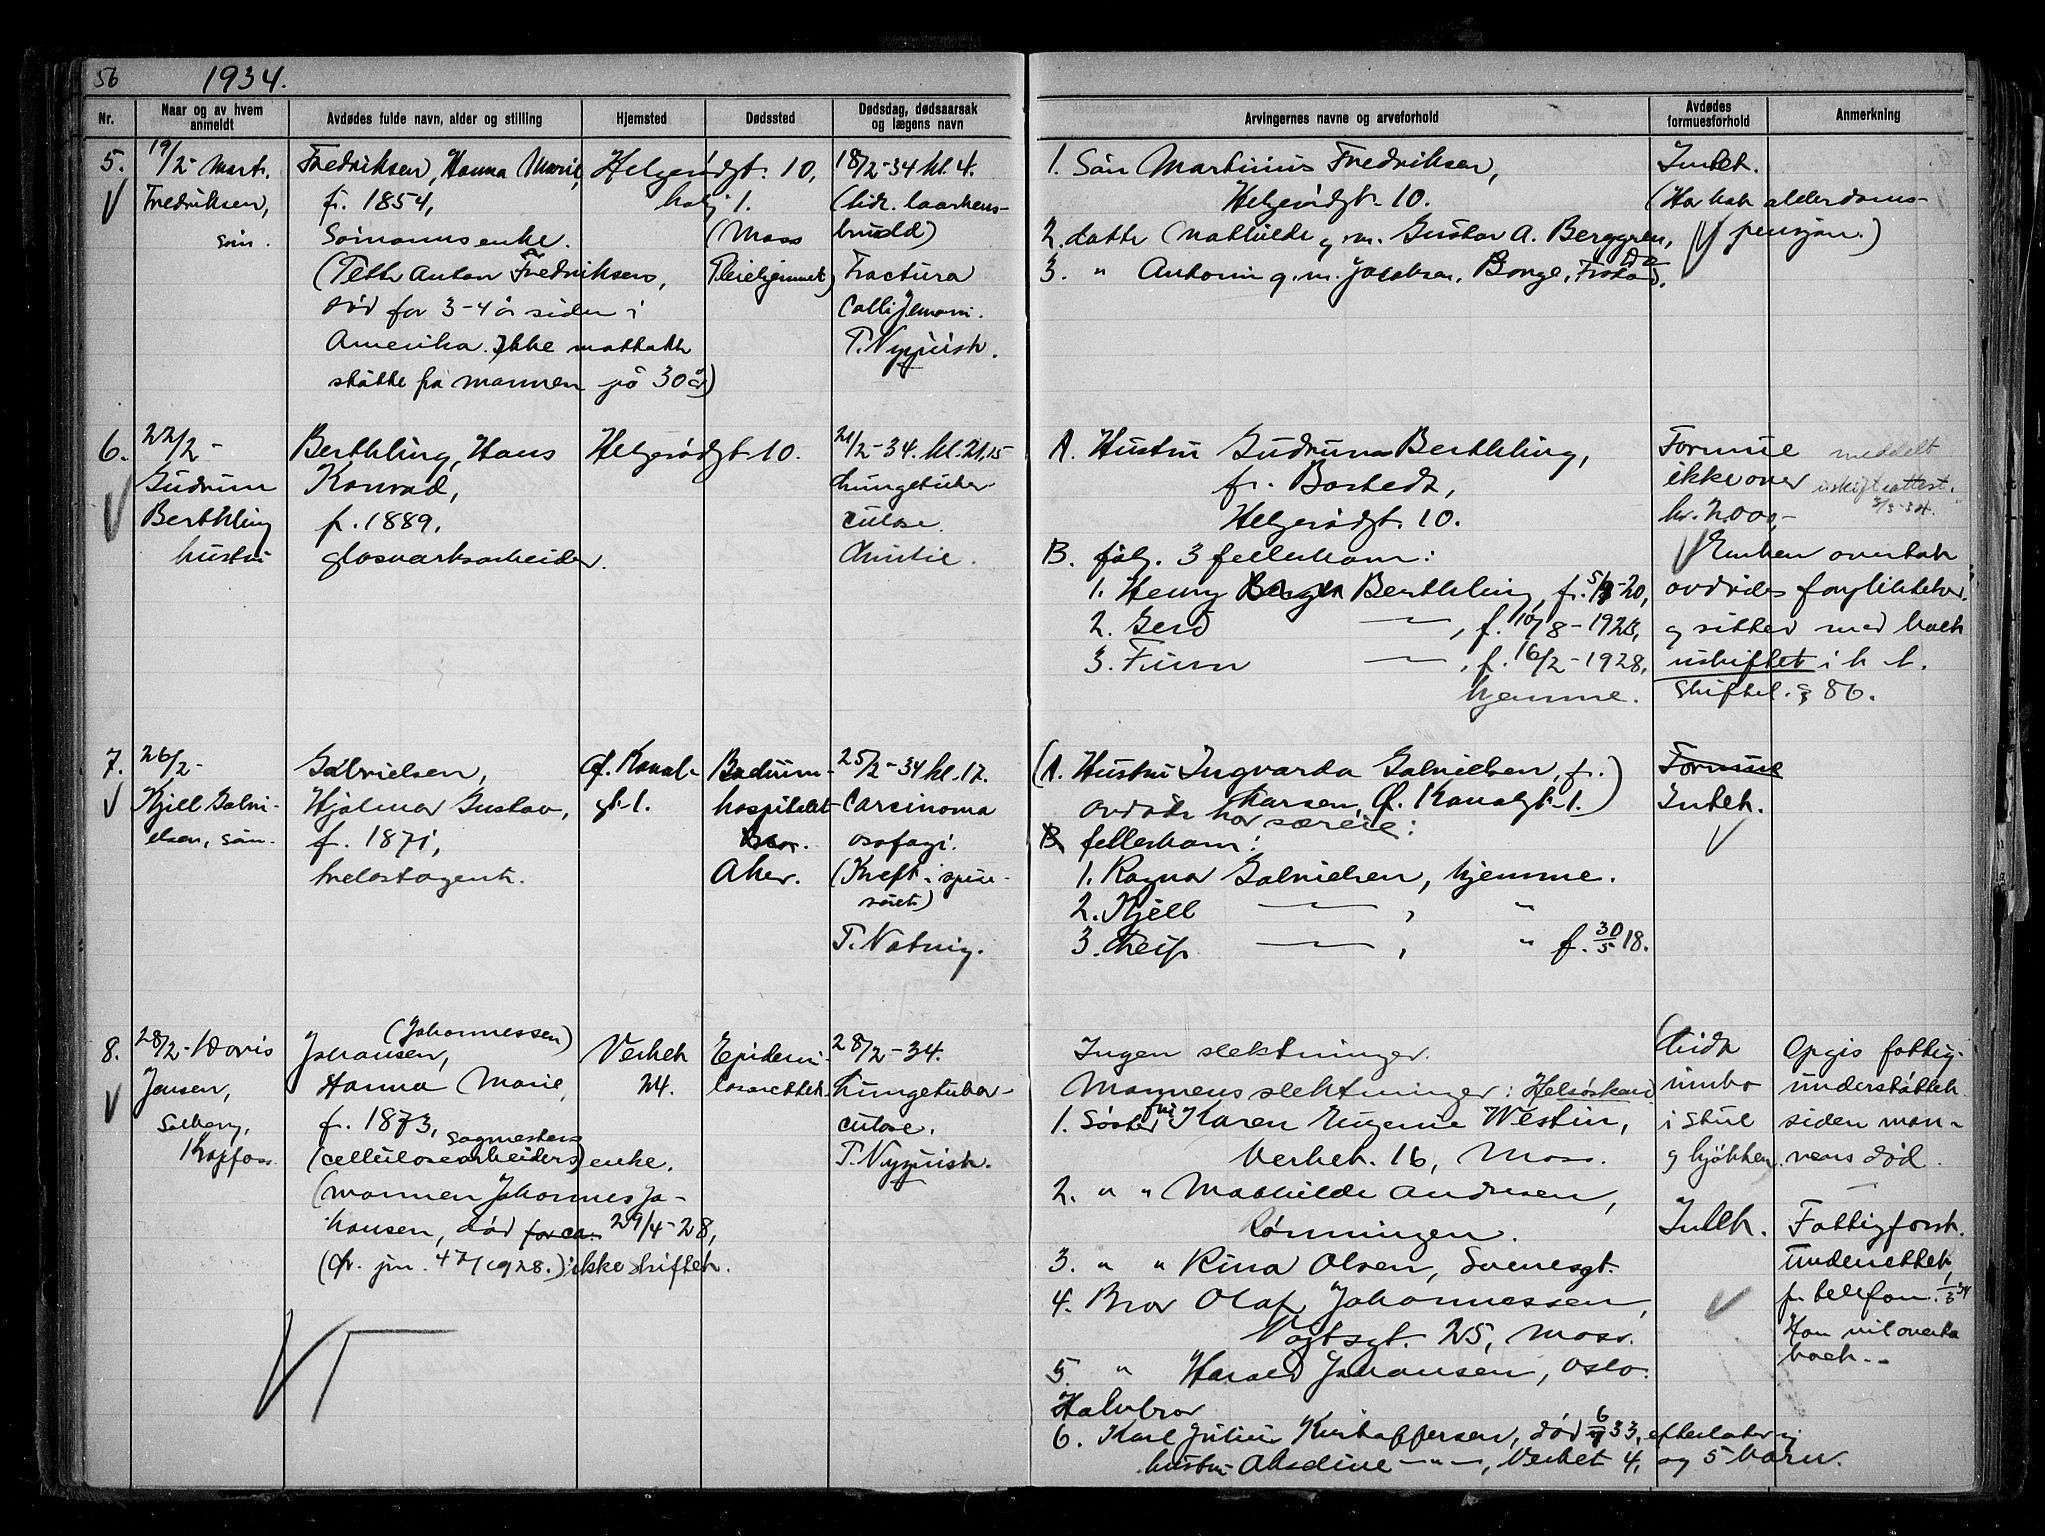 56 1934.
Nr. | Naar og av hvem anmeldt | Avdødes fulde navn, alder og stilling | Hjemsted | Dødssted | Dødsdag, dødsaarsak og lægens navn | Arvingernes navne og arveforhold | Avdødes formuesforhold | Anmerkning
5.
19/2- Mart.
Fredriksen,
søn.
Fredriksen, Hanna Marie,
f. 1854,
Sømannsenke.
(Peth Anton Fredriksen,
død for 3-4 år siden i
Amerika. Ikke mottatt
støtte fra mannen på 30 år)
Helgerødgt. 10,
1.
(Moss
Pleiehjemmet)
18/2-34 kl. 4.
(lidt. laarhens-
brudd)
Fractura
Colli femori.
T. Nyquist.
1. Søn Martinius Fredriksen,
Helgerødgt. 10.
2. datter Mathilde g.m. Gustav A. Berggren,
3. " Antonie g.m. Jacobsen, Borge, Frstad.
Intet.
(Har hatt alderdoms-
pensjon.)
6.
22/2-
Gudrun
Berthling
hustru
Berthling, Hans
Konrad,
f. 1889,
glasverksarbeider.
Helgerødgt 10.
21/2-34. kl. 21,15
Lungetuber-
culose.
Christie.
A. Hustru Gudrun Berthling,
f. Bastedt,
Helgerødgt. 10.
B. følg. 3 fellesbarn:
1. Henry Berthling, f. 5/3-20,
2. Gerd —"—, f. 10/8-1923,
3. Finn —"—, f. 16/2-1928,
hjemme.
Formue
ikke over
kr. 2.000,-
Enken overtok
avdødes forpliktelser
og sitter med boet
uskiftet i h. t.
skiftel. § 86.
meddelt
uskifteattest.
2/3-34.
7.
26/2-
Kjell Gabri-
elsen, søn.
Gabrielsen,
Hjalmar Gustav,
f. 1871,
trelastagent.
Ø. Kanal-
gt. 1.
Bærum-
hospitalet
Aker.
25/2-34 kl. 17.
Carcinoma
osofagi.
(Kreft i spise-
røret)
T. Natvig.
(A. Hustru Ingvarda Gabrielsen, f.
Larsen, Ø. Kanalgt. 1.)
avdøde har særeie:
B fellesbarn:
1. Ragna Gabrielsen, hjemme.
2. Kjell —"—, "
3. Leif —"—, " f. 30/5 18.
Formue
Intet.
8.
28/2-Doris
Jensen,
Solberg,
Kapfoss
(Johannessen)
Johansen,
Hanna Marie,
f. 1873,
sagmesters
(cellulosearbeiders) enke.
(mannen Johannes Jo-
hansen, død for ca. 29/4-28,
(Cfr. jnr. 47/1928.) ikke skiftet.
Verket
24.
Epidemi-
lasarettet.
28/2-34.
Lungetuber-
culose.
T. Nyquist.
Ingen slektninger.
Mannens slektninger: Helsøsken
1. Søster fru Karen Eugenie Westin,
Verket. 16, Moss.
2. " " Mathilde Andresen,
Rønningen.
3. " " Rina Olsen, Svenesgt.
4. Bror Olaf Johannessen,
Vogtsgt. 25, Moss.
5. " Harald Johansen, Oslo.
Halvbror
6. Karl Julius Kristoffersen, død 6/9 33, efterlater sig
hustru Aksdine —"—, Verket 4, og 5 barn.
(Lidt
innbo
i stue
og kjøkken.
Intet.
Opgis fattig-
understøttet
siden man-
nens død.
Fattigforst.
underrettet
pr. telefon. 1/3 34
Han vil overta
boet.